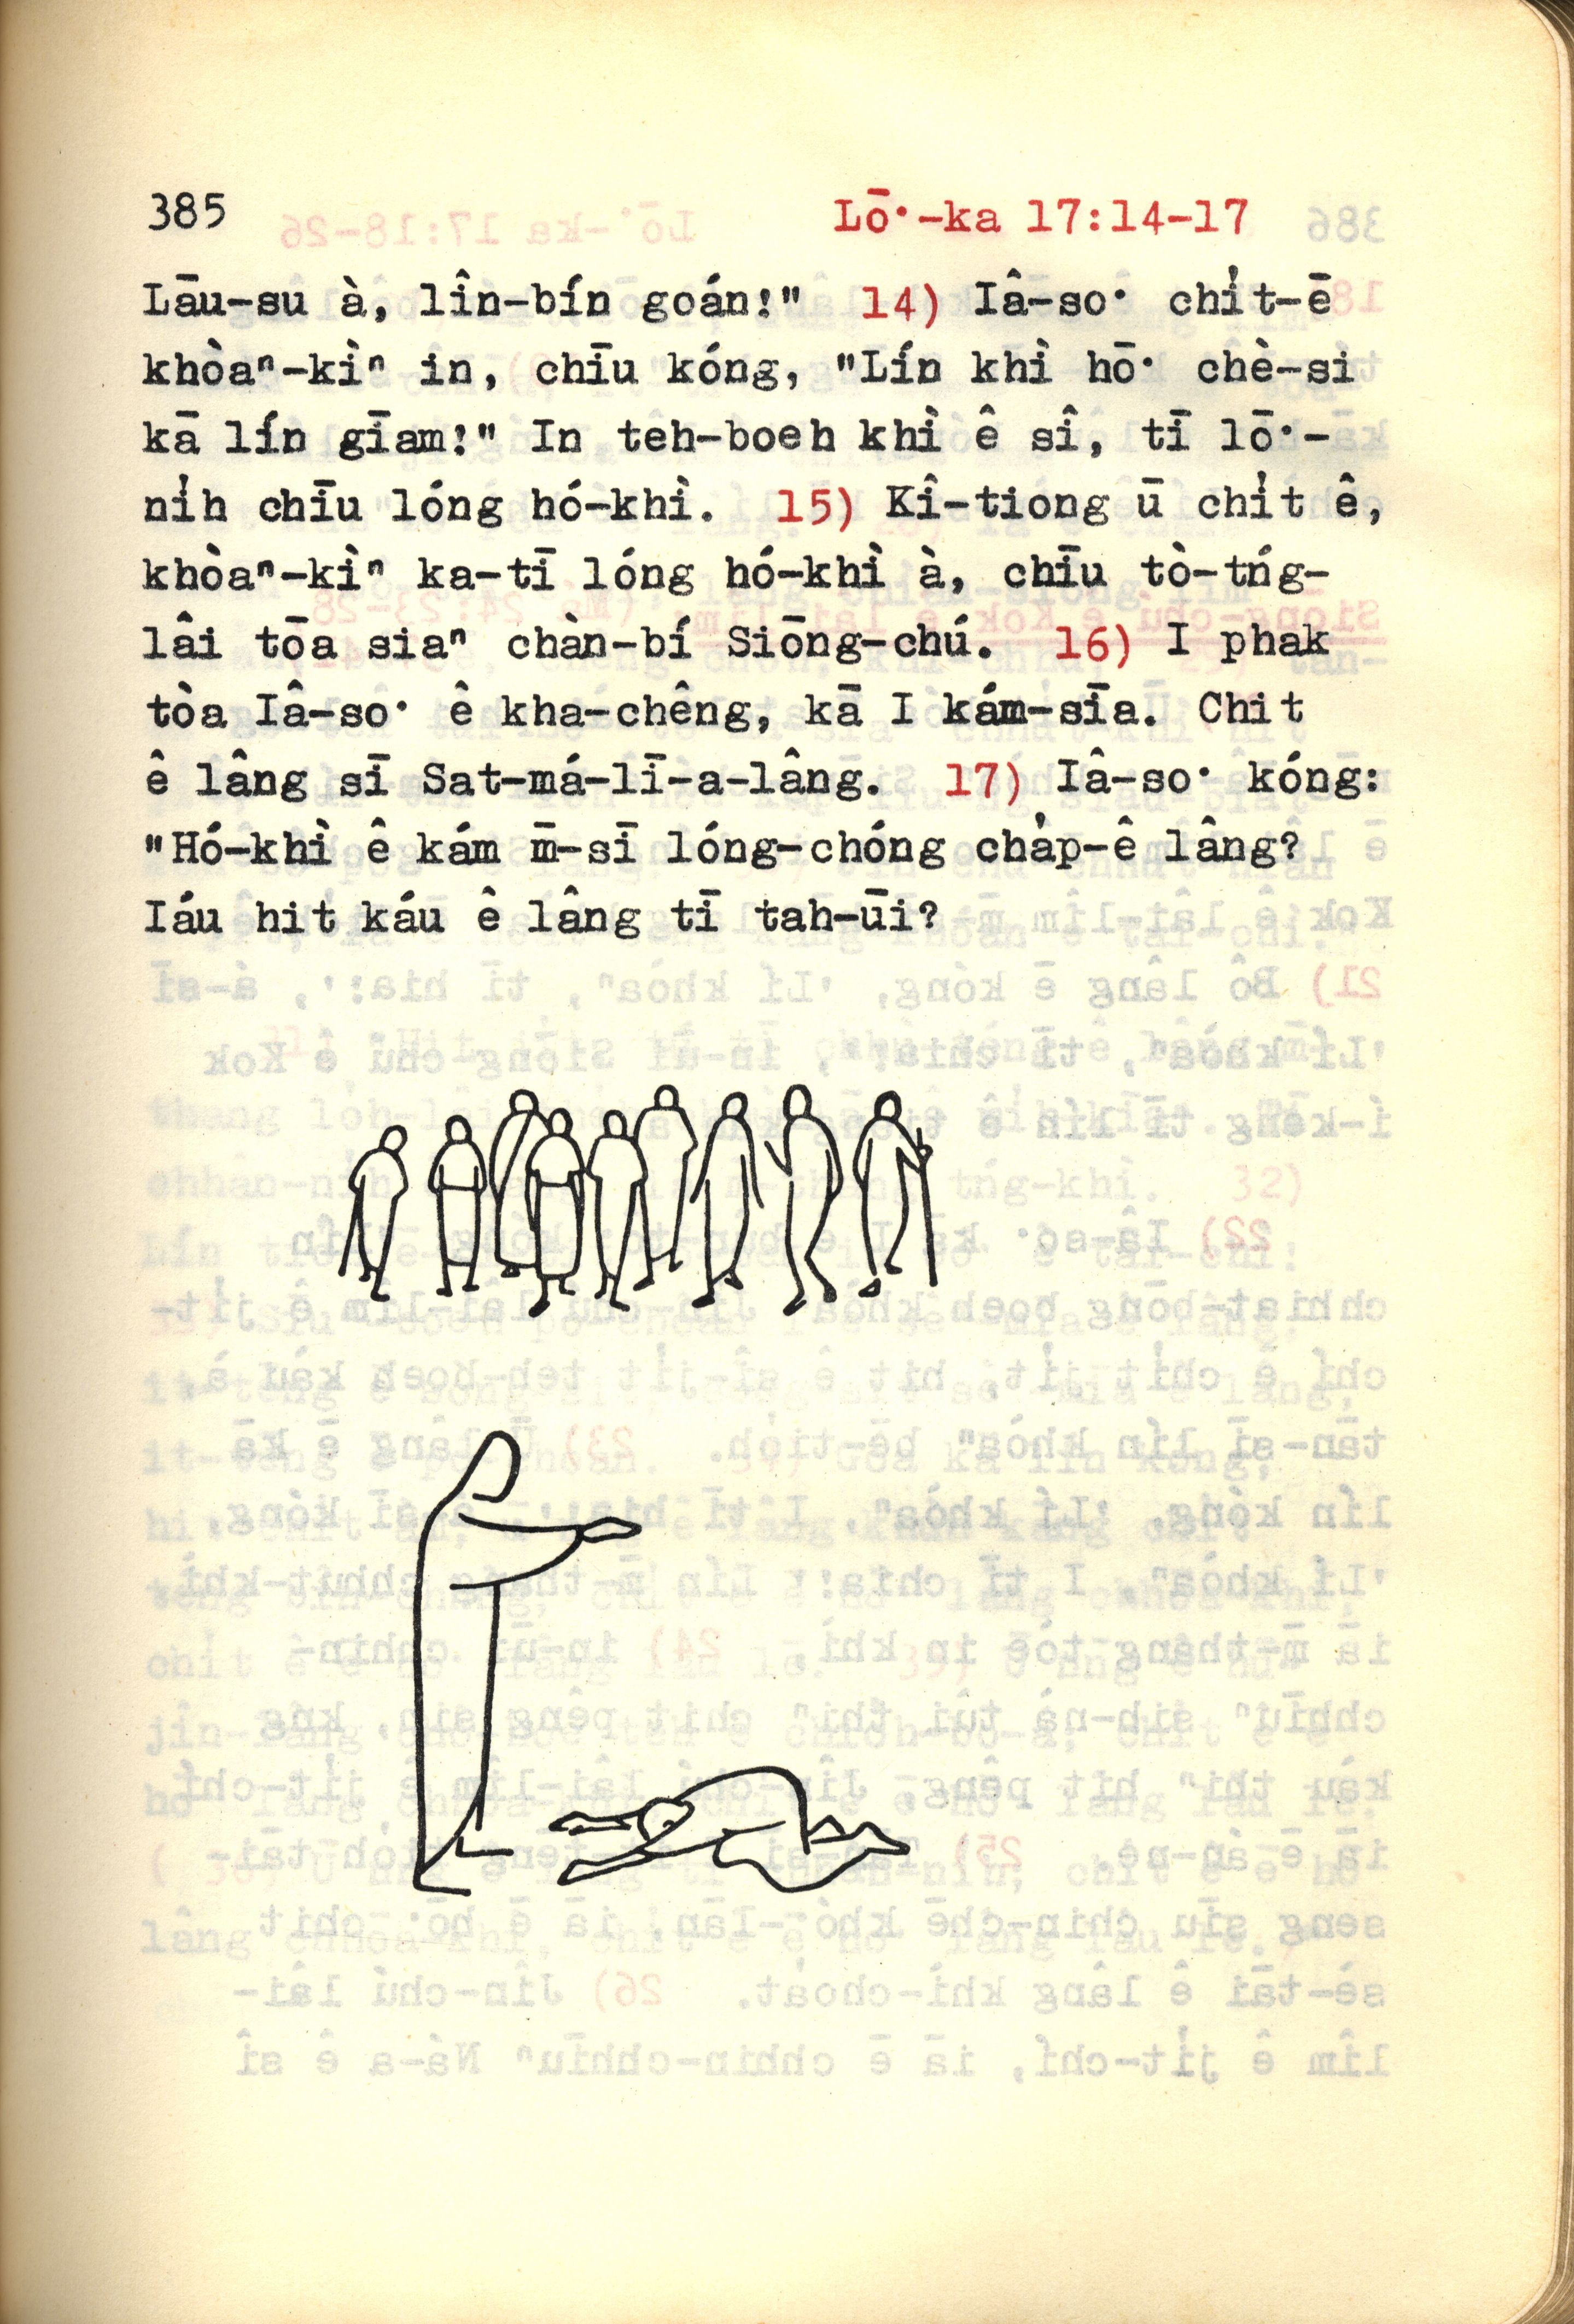 385 Lō͘-ka 17:14-17
Lāu-su à, lîn-bín goán!" 14) Iâ-so͘ chi̍t-ē
khòaⁿ-kìⁿ in, chīu kóng, "Lín khì hō͘ chè-si
kā lín gīam!" In teh-boeh khì ê sî, tī lō͘-
ni̍h chīu lóng hó-khì. 15) Kî-tiong ū chi̍t ê,
khòaⁿ-kìⁿ ka-tī lóng hó-khì à, chīu tò-tńg-
lâi tōa siaⁿ chàn-bí Siōng-chú. 16) I phak
tòa Iâ-so͘ ê kha-chêng, kā I kám-sīa. Chit
ê lâng sī Sat-má-lī-a-lâng. 17) Iâ-so͘ kóng:
"Hó-khì ê kám m̄-sī lóng-chóng cha̍p-ê lâng?
Iáu hit káu ê lâng tī tah-ūi?